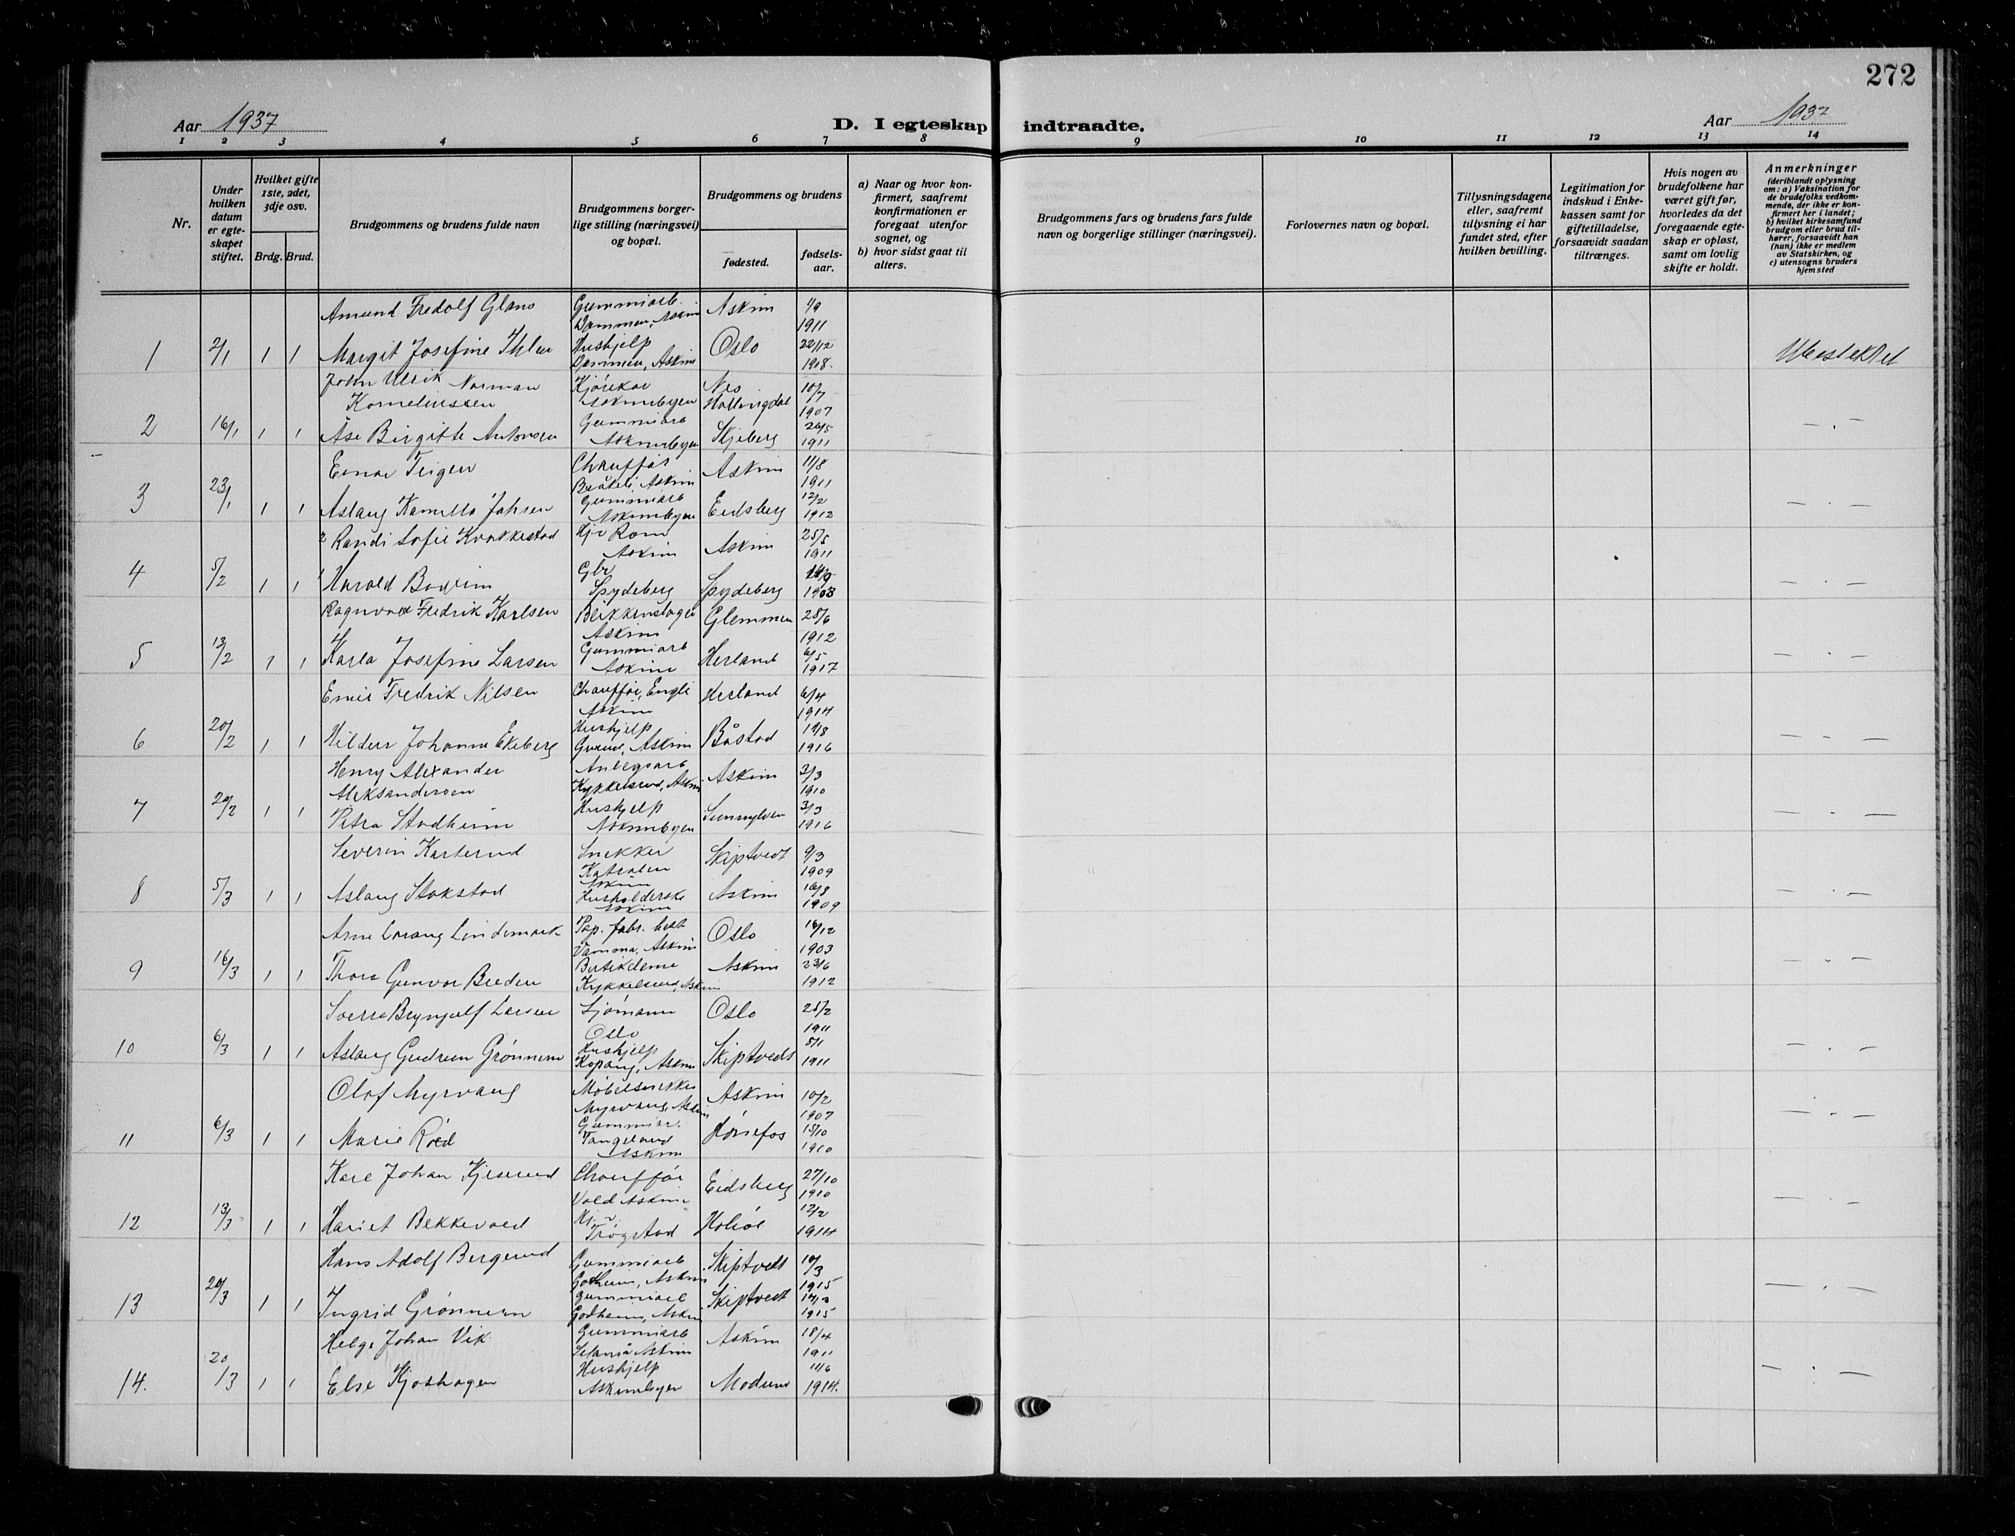 272
Aar 1937
D. I egteskap indtraadte.
Aar 1937
1 2 3 4 5 6 7 8 9 10 11 12 13 14
Nr.
Under hvilken datum er egteskapet stiftet.
Hvilket gifte 1ste, 2det, 3dje osv.
Brdg. Brud.
Brudgommens og brudens fulde navn
Brudgommens borgerlige stilling (næringsvei) og bopæl.
Brudgommens og brudens
fødested.
fødselsaar.
a) Naar og hvor konfirmert, saafremt konfirmationen er foregaat utenfor sognet, og
b) hvor sidst gaat til alters.
Brudgommens fars og brudens fars fulde navn og borgerlige stillinger (næringsvei).
Forlovernes navn og bopæl.
Tillysningsdagene eller, saafremt tillysning ei har fundet sted, efter hvilken bevilling.
Legitimation for indskud i Enkekassen samt for giftetilladelse, forsaavidt saadan tiltrænges.
Hvis nogen av brudefolkene har været gift før, hvorledes da det foregaaende egteskap er opløst, samt om lovlig skifte er holdt.
Anmerkninger
(deriblandt oplysning om: a) Vaksination for de brudefolks vedkommende, der ikke er konfirmert her i landet; b) hvilket kirkesamfund brudgom eller brud tilhører, forsaavidt han (hun) ikke er medlem av Statskirken, og c) utensogns bruders hjemsted
Amund Fredolf Glans Gummiarb. Dammen, Askim Askim 1/9 1911
1 2/1 1 1 Margit Josefine Ihlen Hushjelp Dammen, Askim Oslo 22/12 1908.
John Ulrik Norman Korneliussen Kjørekar Askimbyen Nes Hallingdal 10/7 1907
2 16/1 1 1 Åse Birgitte Antonsen Gummiarb Askimbyen Skjeberg 26/5 1911 - . -
Einar Teigen Chauffør Bråteli, Askim Askim 11/8 1911
3 23/1 1 1 Aslaug Kamilla Johnsen Gummiarb Askimbyen Eidsberg 12/2 1912 - . -
2 Randi Sofie Krokkestad Hj. Rom Askim Askim 25/5 1911
4 5/2 1 1 1 Harald Gbr. Spydeberg Spydeberg 1903 - . -
Ragnvald Fredrik Karlsen Blikkenslager Askim Glemmen 25/6 1912
5 13/2 1 1 Karla Josefine Larsen Gummiarb Askim Herland 6/5 1917 - . -
Emil Fredrik Nilsen Chauffør, Engli Askim Herland 6/4 1914
6 20/2 1 1 Hildur Johanne Ekeberg Hushjelp Grund, Askim Båstad 19/8 1916 - . -
Henry Alexander Aleksandersen Anlegsarb Kykkelsrud, Askim Askim 3/3 1910
7 20/2 1 1 Petra Stadheim Hushjelp Askimbyen Sunnylven 3/3 1916 - . -
Severin Karterud Snekker Askim Skiptvedt 9/3 1909
8 5/3 1 1 Aslaug Stokstad Husholderske Askim Askim 16/8 1909 - . -
Arne Lorang Lindemark Pap. fabr. best Vamma, Askim Oslo 16/12 1903
9 16/3 1 1 Thora Gunvor Breden Butikdame Kykkelsrud, Askim Askim 23/6 1912 - . -
Sverre Brynjulf Larsen Sjømann Oslo Oslo 25/2 1911
10 6/3 1 1 Aslaug Gudrun Grønnern Hushjelp Kopås, Askim Skiptvedt 5/1 1911 - . -
Olaf Myrvang Møbelsnekker Myrvang, Askim Askim 10/2 1907
11 6/3 1 1 Marie Røed Gummiar. Tangelund Askim Hønefos 15/10 1910 - . -
Kåre Johan Kjeserud Chauffør Vold Askim Eidsberg 27/10 1910
12 13/3 1 1 Hariet Bekkevold Hj. Trøgstad Hobøl 12/2 1914 - . -
Hans Adolf Bergerud Gummiarb Godheim, Askim Skiptvedt 10/3 1915
13 20/3 1 1 Ingrid Grønnern Gummiarb Godheim, Askim Skiptvedt 1915 - . -
Helge Johan Vik Gummiarb Askim Askim 18/4 1911
14. 20/3 1 1 Else Kjoshagen Hushjelp Askimbyen Modum 11/6 1914. - . -